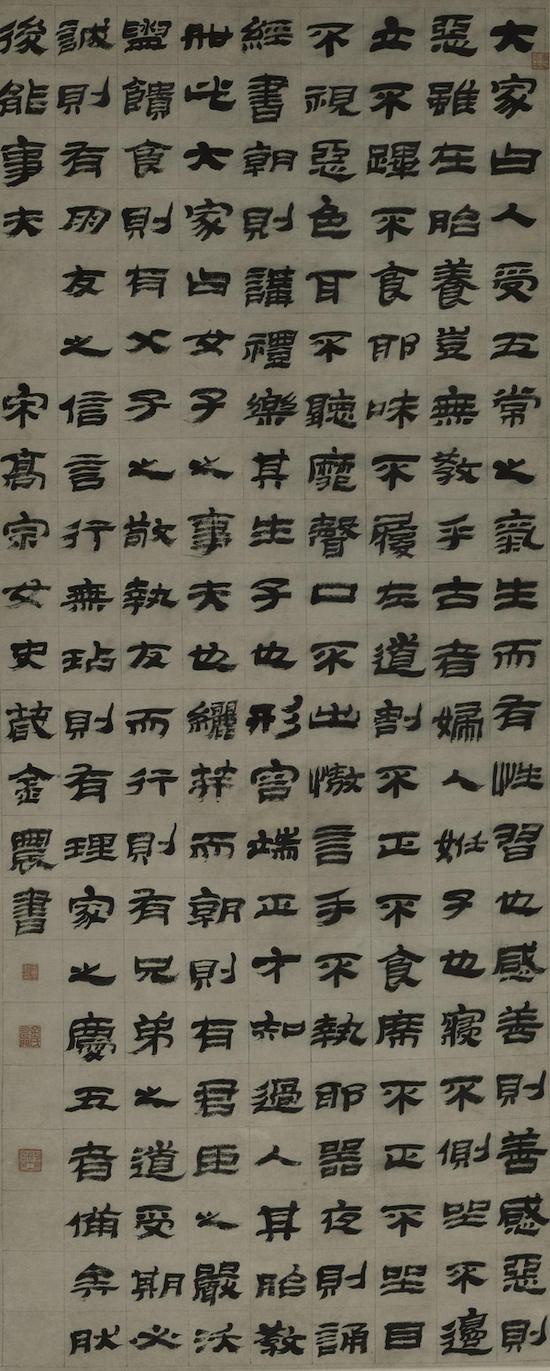 大家曰人受五常之氣生而有性習也感善則善感惡則
惡雖在胎養豈無敎乎古者婦人妊子也寢不側坐不邊
立不蹕不食耶味不履左道割不正不食席不正不坐目
不視惡色耳不聽靡聲口不出慠言手不執耶器夜則誦
經書朝則講禮樂其生子也形容端正才知過人其胎敎
如此大家曰女子之事夫也纚笄而朝則有君臣之嚴沃
盥饋食則有父子之敬執友而行則有兄弟之道受期必
誠則有朋友之信言行無玷則有理家之慶五者備矣肰
後能事夫
宋高宗女史箴金農書